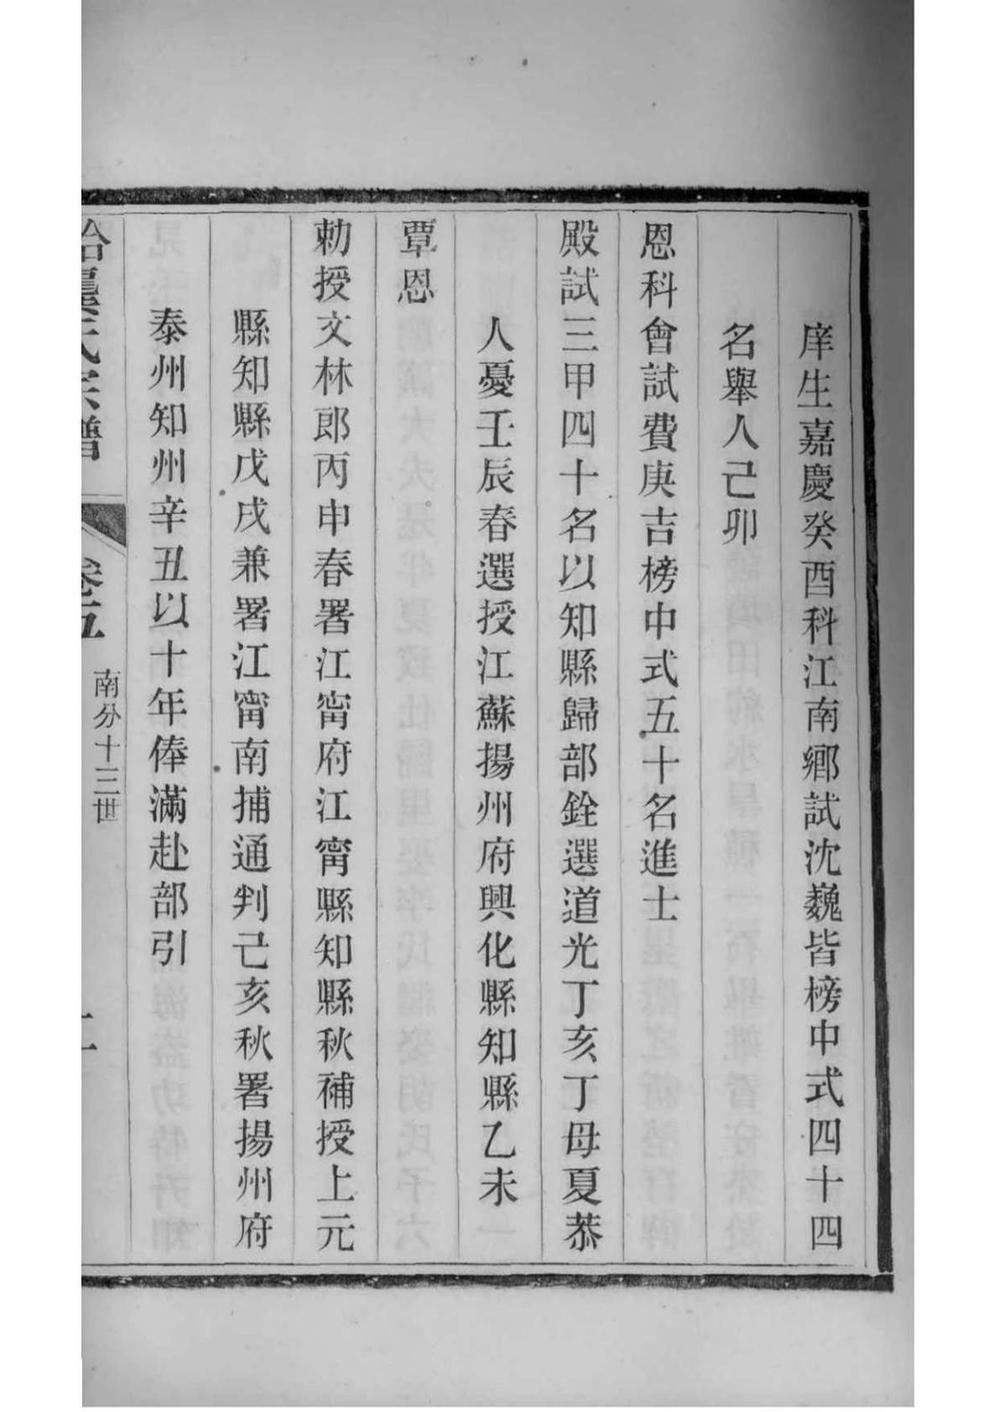 庠生嘉慶癸酉科江南鄉試沈巍皆榜中式四十四
名舉人己卯
恩科會試費庚吉榜中式五十名進士
殿試三甲四十名以知縣歸部銓選道光丁亥丁母夏恭
人憂壬辰春選授江蘇揚州府興化縣知縣乙未
覃恩
勅授文林郎丙申春署江甯府江甯縣知縣秋補授上元
縣知縣戊戌兼署江甯南捕通判己亥秋署揚州府
泰州知州辛丑以十年俸滿赴部引
龔氏宗譜
卷五
南分十三世